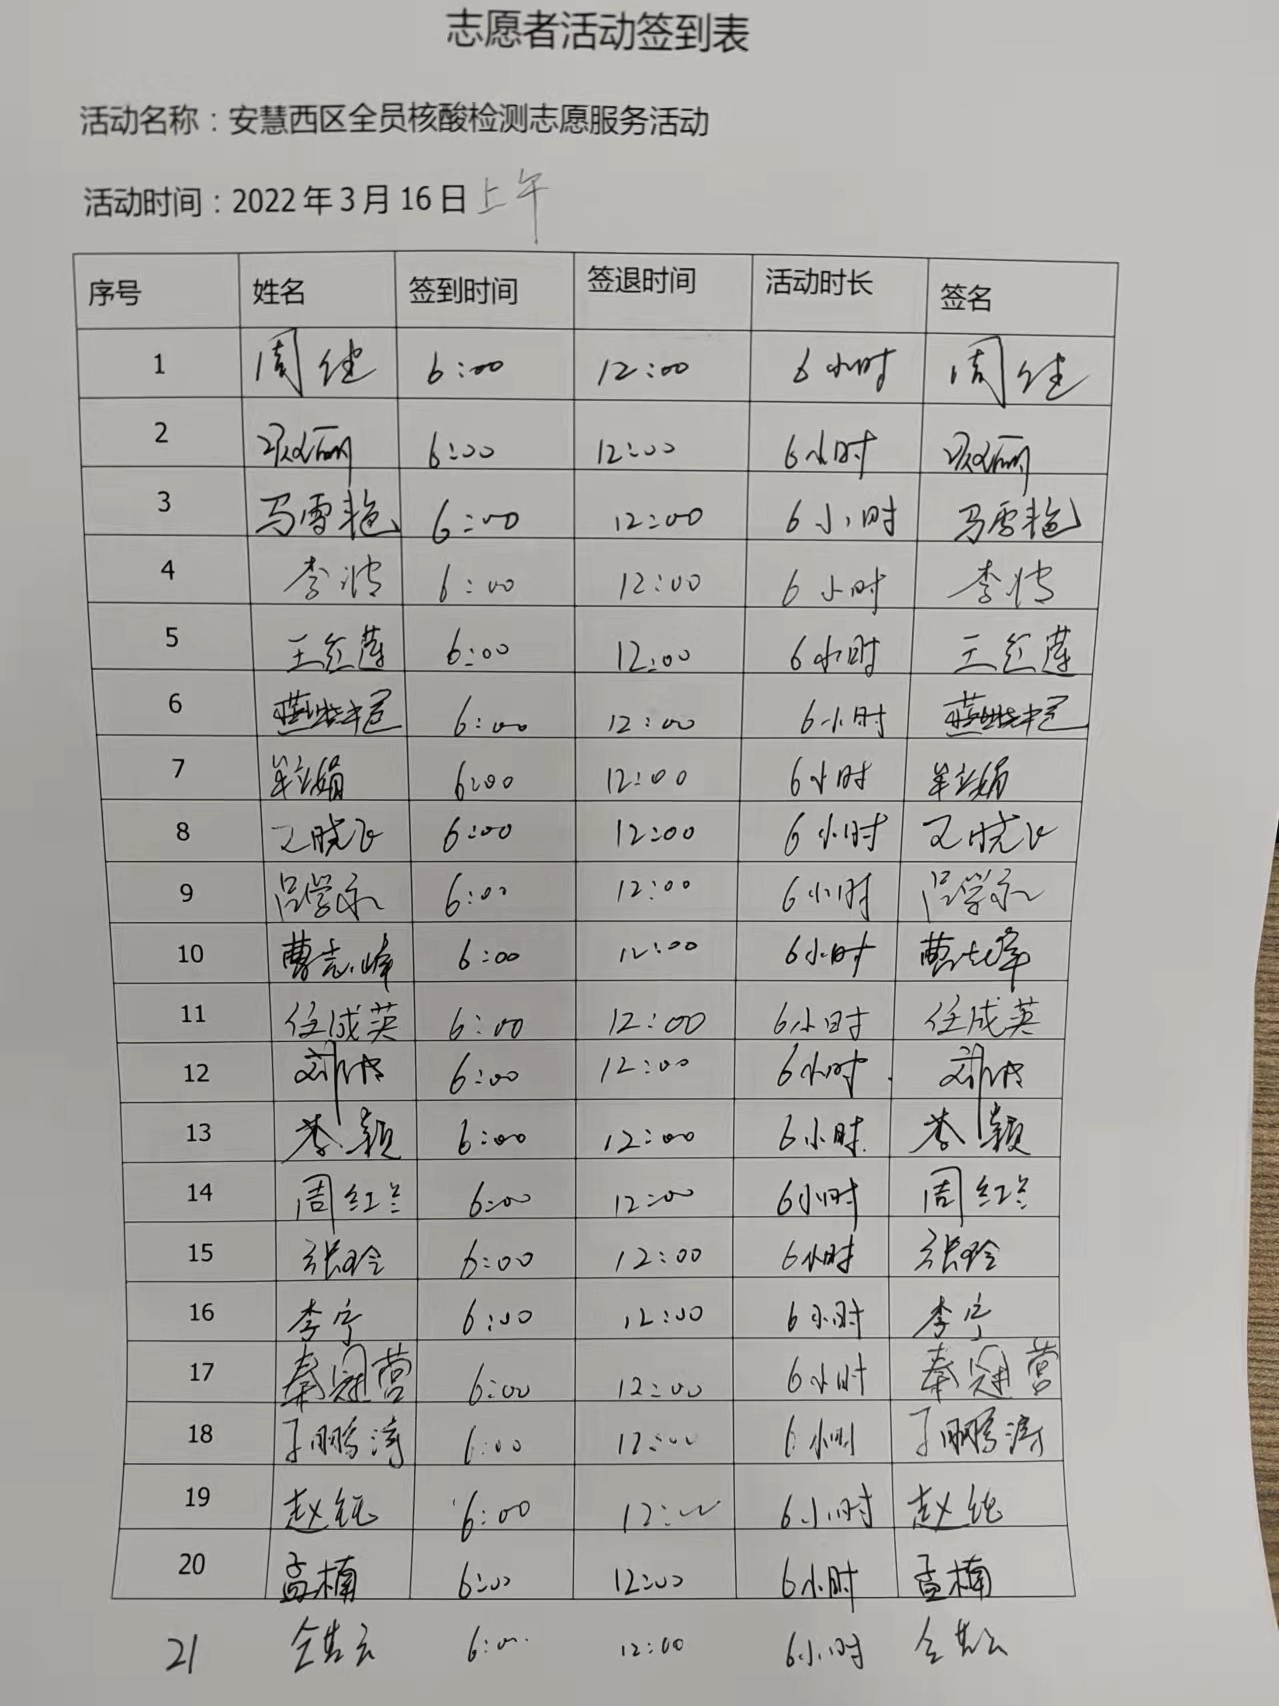 志愿者活动签到表
活动名称：安慧西区全员核酸检测志愿服务活动
活动时间：2022年3月16日上午
序号 姓名 签到时间 签退时间 活动时长 签名
1 周健 6:00 12:00 6小时 周健
2 6:00 12:00 6小时
3 马雪艳 6:00 12:00 6小时 马雪艳
4 李波 6:00 12:00 6小时 李波
5 王红莲 6:00 12:00 6小时 王红莲
6 6:00 12:00 6小时
7 6:00 12:00 6小时
8 王晓飞 6:00 12:00 6小时 王晓飞
9 吕学永 6:00 12:00 6小时 吕学永
10 曹志峰 6:00 12:00 6小时 曹志峰
11 任成英 6:00 12:00 6小时 任成英
12 6:00 12:00 6小时
13 李颖 6:00 12:00 6小时 李颖
14 周红兰 6:00 12:00 6小时 周红兰
15 张玲 6:00 12:00 6小时 张玲
16 李宁 6:00 12:00 6小时 李宁
17 秦冠营 6:00 12:00 6小时 秦冠营
18 于鹏涛 6:00 12:00 6小时 于鹏涛
19 赵纯 6:00 12:00 6小时 赵纯
20 孟楠 6:00 12:00 6小时 孟楠
21 6:00 12:00 6小时